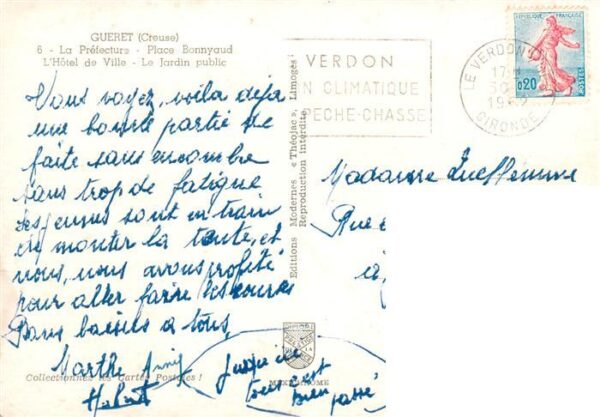 GUERET (Creuse)
6 - La Préfecture - Place Bonnyaud
L'Hôtel de Ville - Le Jardin public
Vous voyez, voilà déjà
une bonne partie de
faite sans encombre
sans trop de fatigue
les jeunes sont en train
de monter la tente, et
nous, nous avons profité
pour aller faire les courses
Bons baisers à tous,
Marthe Annie
Hubert
Jusqu'ici
tout s'est
bien passé
Collectionnez les Cartes Postales !
MEXICHROME
Editions Modernes « Théojac », Limoges
Reproduction interdite
VERDON
N CLIMATIQUE
PECHE-CHASSE
LE VERDON
17
GIRONDE
REPUBLIQUE FRANÇAISE
0,20
POSTES
Madame
Rue